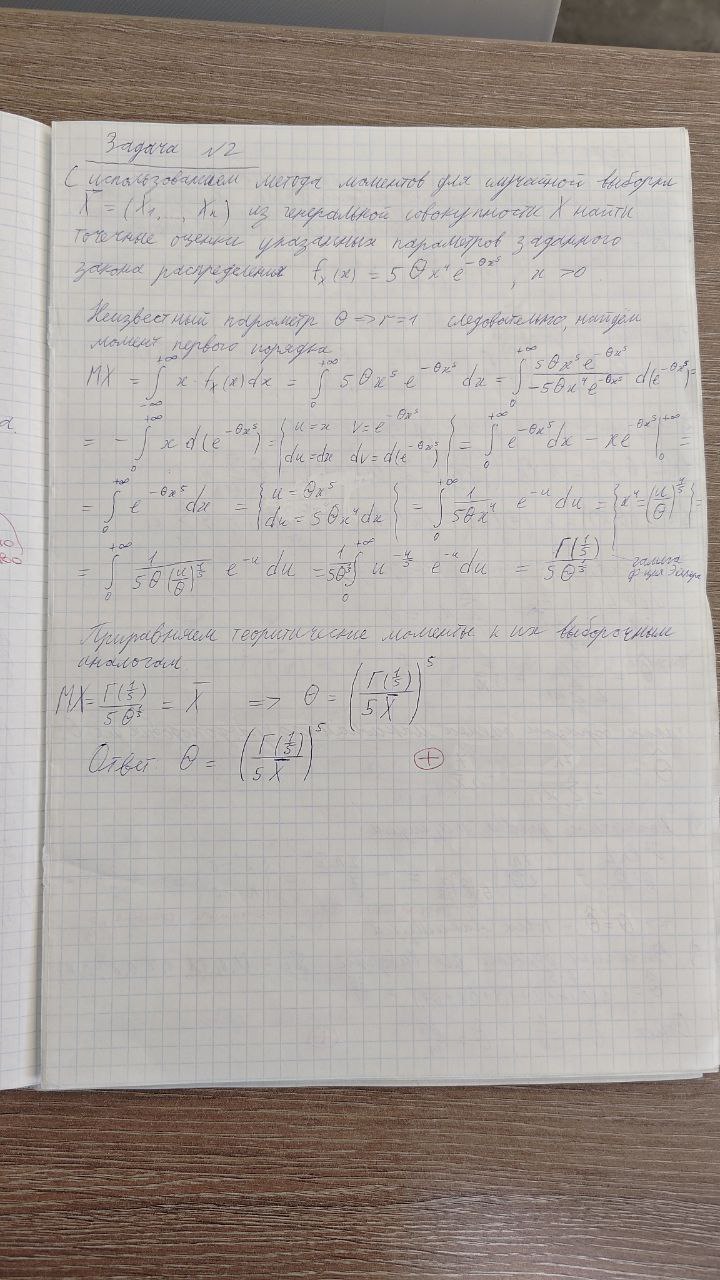 Задача №2
С использованием метода моментов для случайной выборки
X⃗ = (X₁, ..., Xₙ) из генеральной совокупности X найти
точечные оценки указанных параметров заданного
закона распределения fₓ(x) = 5θx⁴e^(-θx⁵), x > 0
Неизвестный параметр θ => r=1 следовательно, найдем
момент первого порядка
MX = ∫_{-∞}^{+∞} x·fₓ(x)dx = ∫_0^{+∞} 5θx⁵e^(-θx⁵) dx = ∫_0^{+∞} (5θx⁵e^(-θx⁵))/(-5θx⁴e^(-θx⁵)) d(e^(-θx⁵)) =
= - ∫_0^{+∞} x d(e^(-θx⁵)) = {u = x v = e^(-θx⁵) du = dx dv = d(e^(-θx⁵))} = ∫_0^{+∞} e^(-θx⁵)dx - xe^(-θx⁵)|_0^{+∞} =
= ∫_0^{+∞} e^(-θx⁵)dx = {u = θx⁵ du = 5θx⁴dx} = ∫_0^{+∞} 1/(5θx⁴) e^(-u) du = {x⁴ = (u/θ)^(4/5)} =
= ∫_0^{+∞} 1/(5θ(u/θ)^(4/5)) e^(-u) du = 1/(5θ^(1/5)) ∫_0^{+∞} u^(-4/5) e^(-u) du = Γ(1/5)/(5θ^(1/5)) гамма ф-ция Эйлера
Приравняем теоритические моменты к их выборочным
аналогам
MX = Γ(1/5)/(5θ^(1/5)) = X̄ => θ = (Γ(1/5)/(5X̄))⁵
Ответ θ = (Γ(1/5)/(5X̄))⁵ +